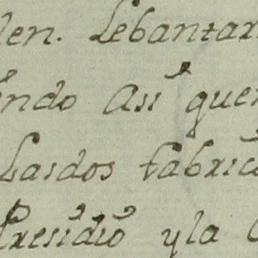 len. Lebantar
endo Asi quen
Laidos fabric
Presidio y la